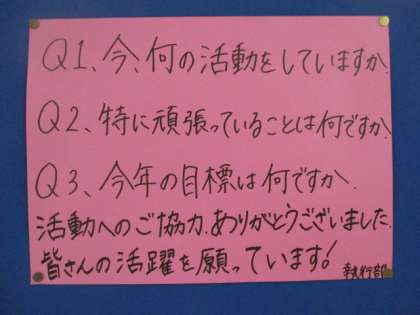 Q1、今、何の活動をしていますか.
Q2、特に頑張っていることは何ですか.
Q3、今年の目標は何ですか.
活動へのご協力.ありがとうございました.
皆さんの活躍を願っています!
執行部